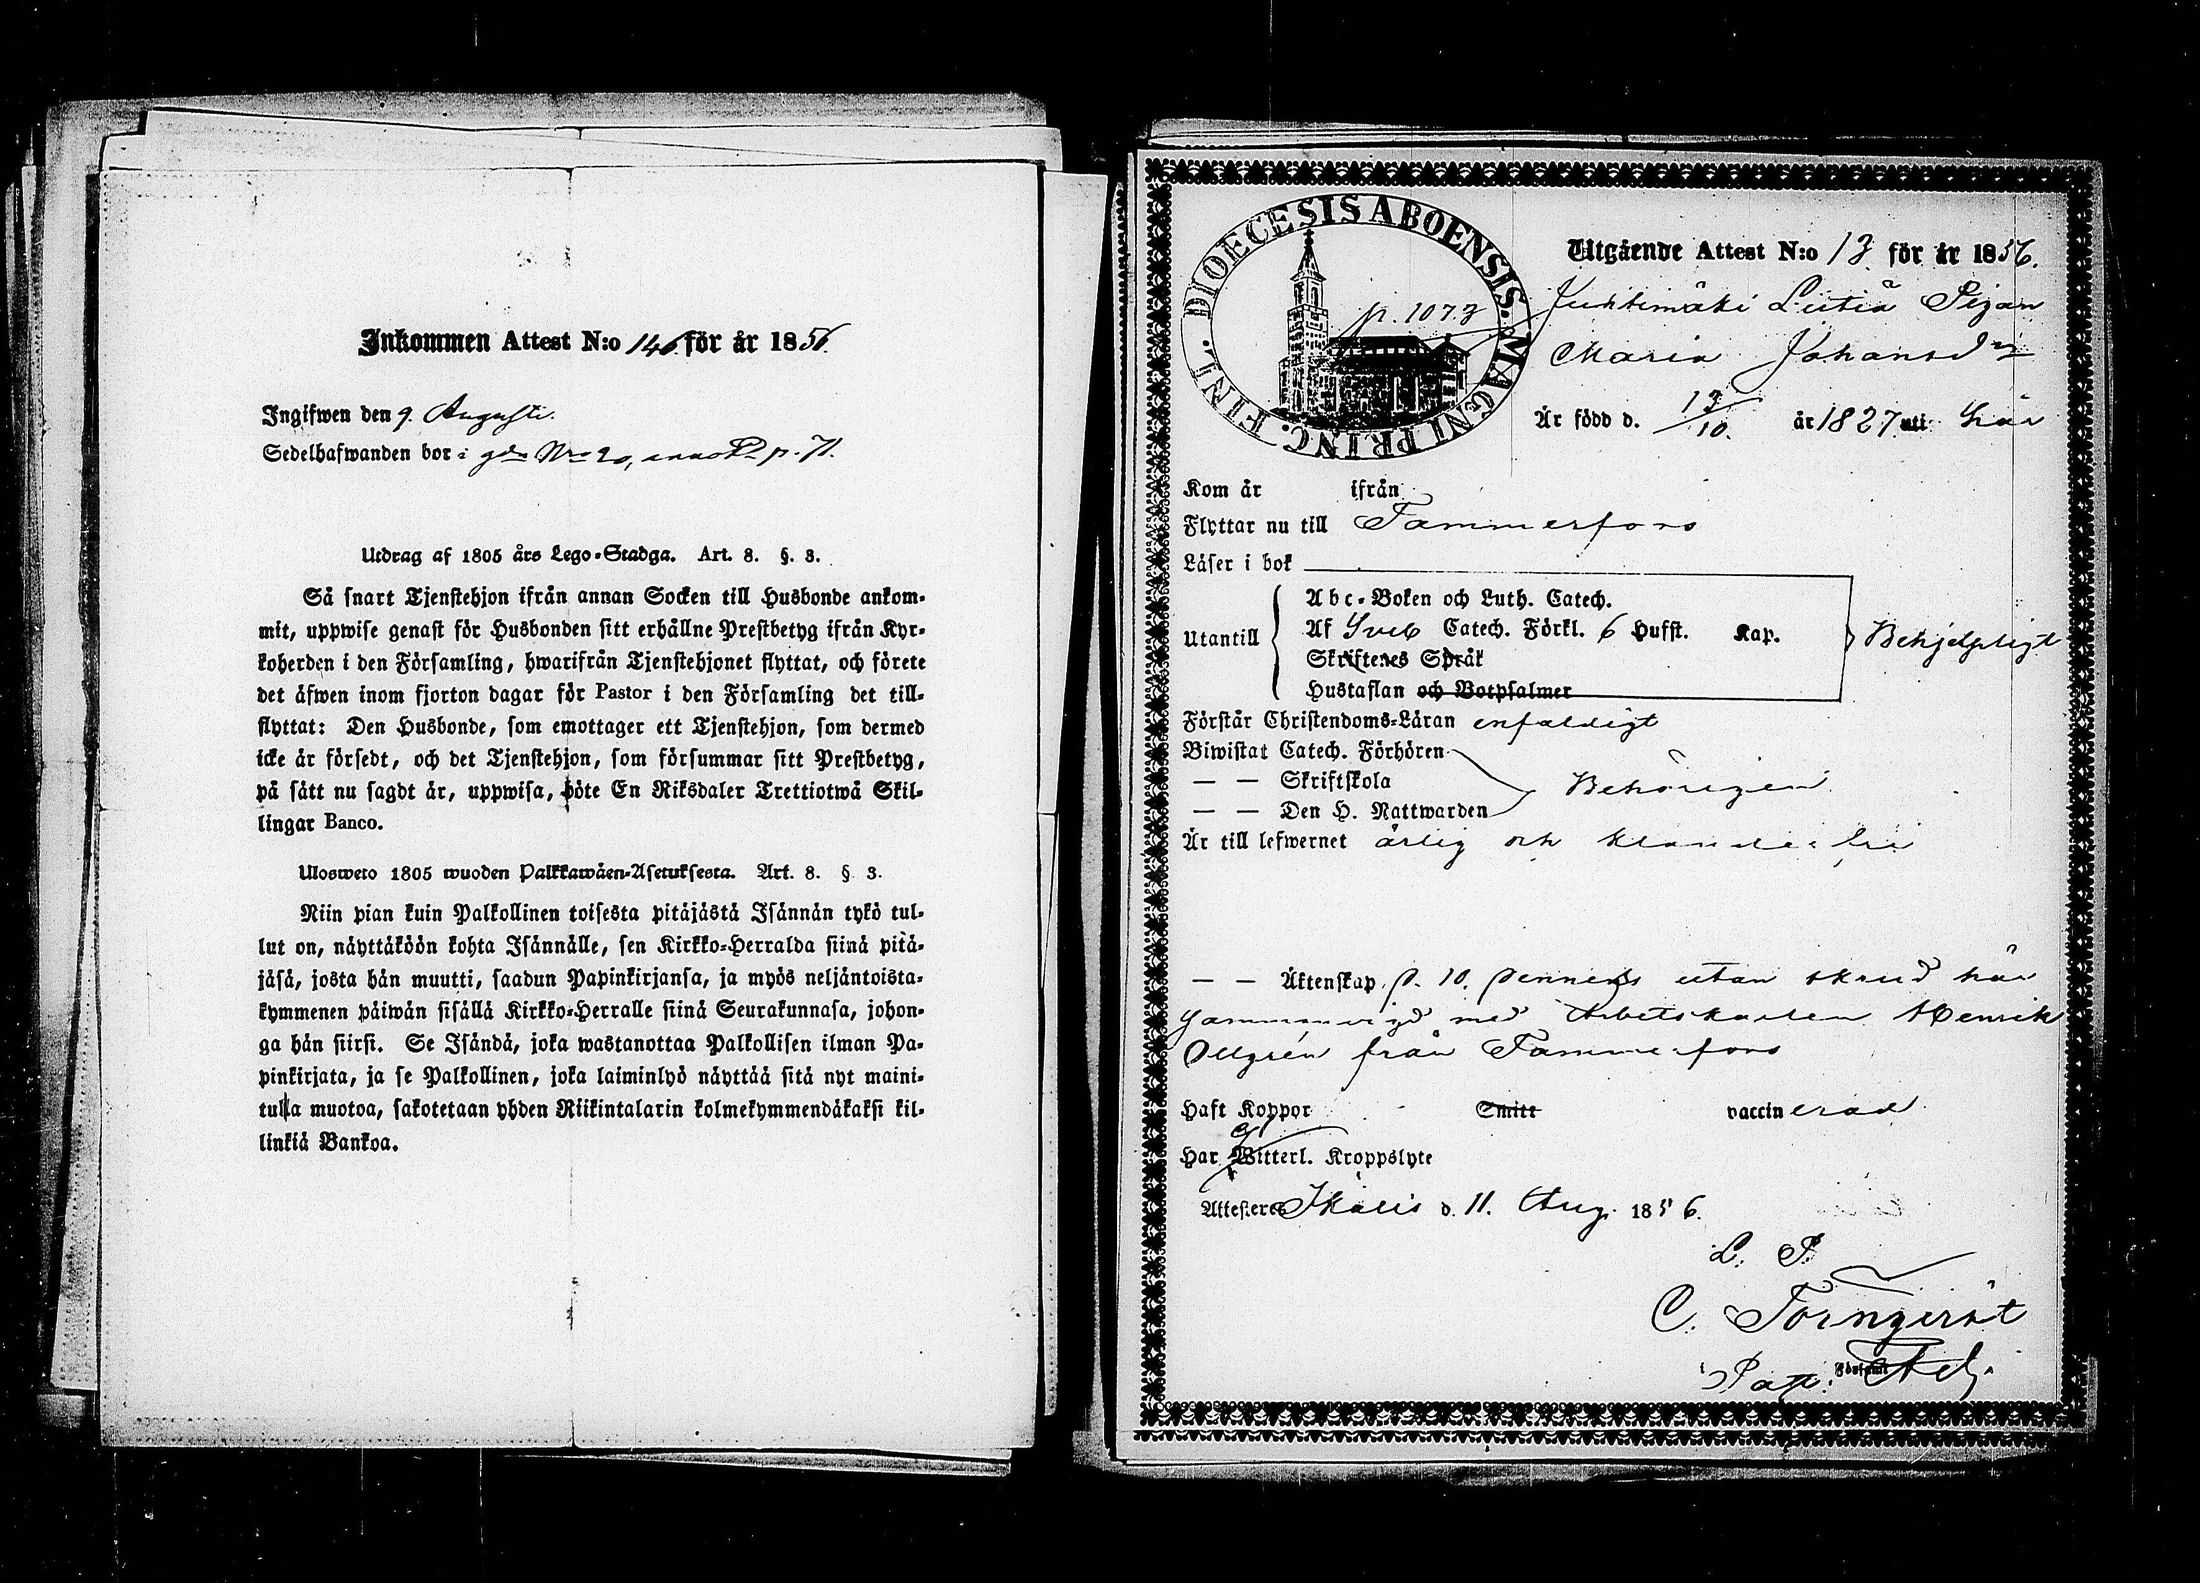 Inkommen Attest N:o 146 för år 1856.
Ingifwen den 9. Augusti.
Sedelhafwanden bor i gdn Nro 20, p. 71.
Utdrag af 1805 års Lego-Stadga. Art. 8. §. 3.
Så snart Tjenstehjon ifrån annan Socken till Husbonde ankom-
mit, uppwise genast för Husbonden sitt erhållne Prestbetyg ifrån Kyr-
koherden i den Församling, hwarifrån Tjenstehjonet flyttat, och förete
det äfwen inom fjorton dagar för Pastor i den Församling det till-
flyttat: Den Husbonde, som emottager ett Tjenstehjon, som dermed
icke är försedt, och det Tjenstehjon, som försummar sitt Prestbetyg,
på sätt nu sagdt är, uppwisa, böte En Riksdaler Trettiotwå Skil-
lingar Banco.
Ulosweto 1805 wuoden Palkkawäen-Asetuksesta. Art. 8. § 3.
Niin pian kuin Palkollinen toisesta pitäjästä Isännän tykö tul-
lut on, näyttäköön kohta Isännälle, sen Kirkko-Herralda siinä pitä-
jäsä, josta hän muutti, saadun Papinkirjansa, ja myös neljäntoista-
kymmenen päiwän sisällä Kirkko-Herralle siinä Seurakunnasa, johon-
ga hän siirsi. Se Isändä, joka wastanottaa Palkollisen ilman Pa-
pinkirjata, ja se Palkollinen, joka laiminlyö näyttää sitä nyt maini-
tulla muotoa, sakotetaan yhden Riikintalarin kolmekymmendäkaksi kil-
linkiä Bankoa.
DIOECESIS ABOENSIS. MAGNI PRINC. FINL.
p. 1073
Utgående Attest N:o 13 för år 1856.
Juhtimäki Lutiä Pigan
Maria Johansdr
Är född d. 13/10. år 1827 uti här
Kom år ifrån
Flyttar nu till Tammerfors
Läser i bok
Utantill
Abc-Boken och Luth. Catech.
Af Sveb Catech. Förkl. 6 Hufst. Kap.
Skriftenes Språk
Hustaflan och Botpsalmer
Behjelpligt
Förstår Christendoms-Läran enfaldigt
Biwistat Catech. Förhören
— — Skriftskola
— — Den H. Nattwarden
Behörigen
Är till lefwernet ärlig och klanderfri
— — Äktenskap, p. 10. utan skrud här
Sammanvigd med Arbetskarlen Henrik
Ollgrén från Tammerfors
Haft Koppor Smitt vaccinerad
Har ej Witterl. Kroppslyte
Attesteres Ikalis d. 11. Aug. 1856.
L. P.
C. Törnqvist
Past. Adj.